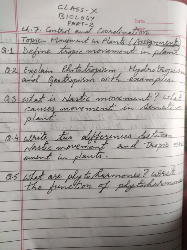 CLASS-X
BIOLOGY
PART-2
Date
Ch:7. Control and Coordination
Topic Movement in Plants (Assignment)
Q.1 Define tropic movement in plant
Q.2 Explain Phototropism, Hydrotropism
and Geotropism with example
Q.3 What is Nastic movement? What
causes movement in sensitive
plant
Q.4 Write two differences between
Nastic movement and tropic mov
ement in plants.
Q.5 What are phytohormones? Write
the function of phytohormones